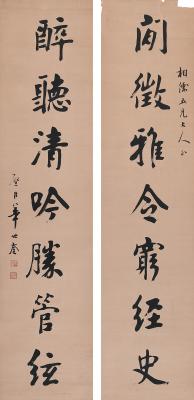 相儒五兄大人正
閒徵雅令窮經史
醉聽清吟勝管絃
璧臣華世奎